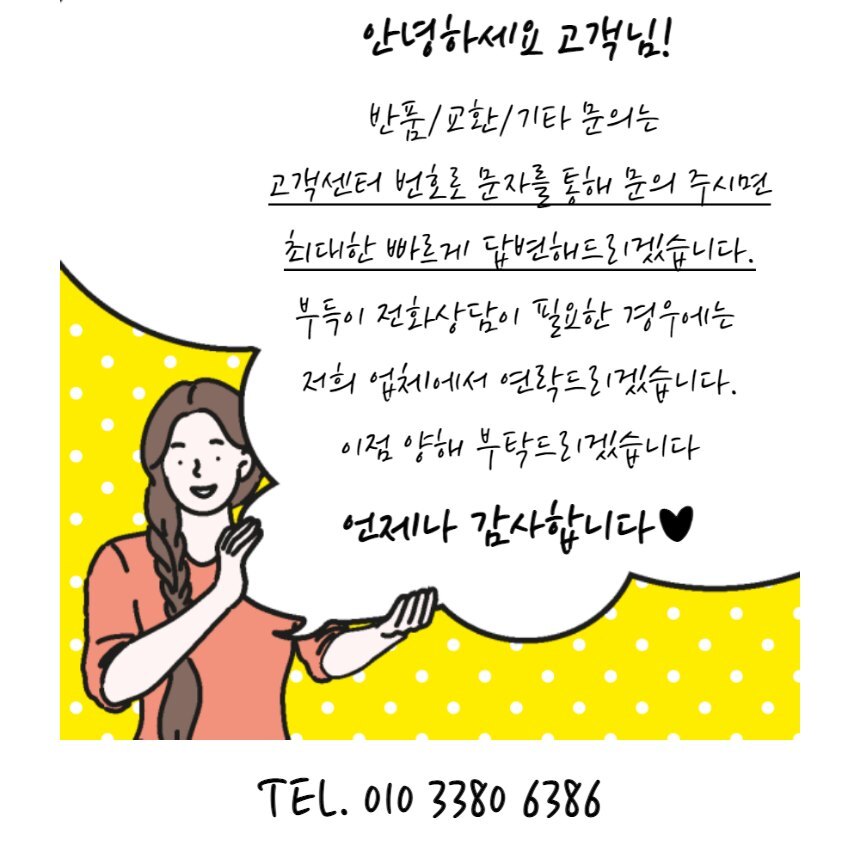 안녕하세요 고객님!
반품/교환/기타 문의는
고객센터 번호로 문자를 통해 문의 주시면
최대한 빠르게 답변해드리겠습니다.
부득이 전화상담이 필요한 경우에는
저희 업체에서 연락드리겠습니다.
이점 양해 부탁드리겠습니다
언제나 감사합니다♥
TEL. 010 3380 6386